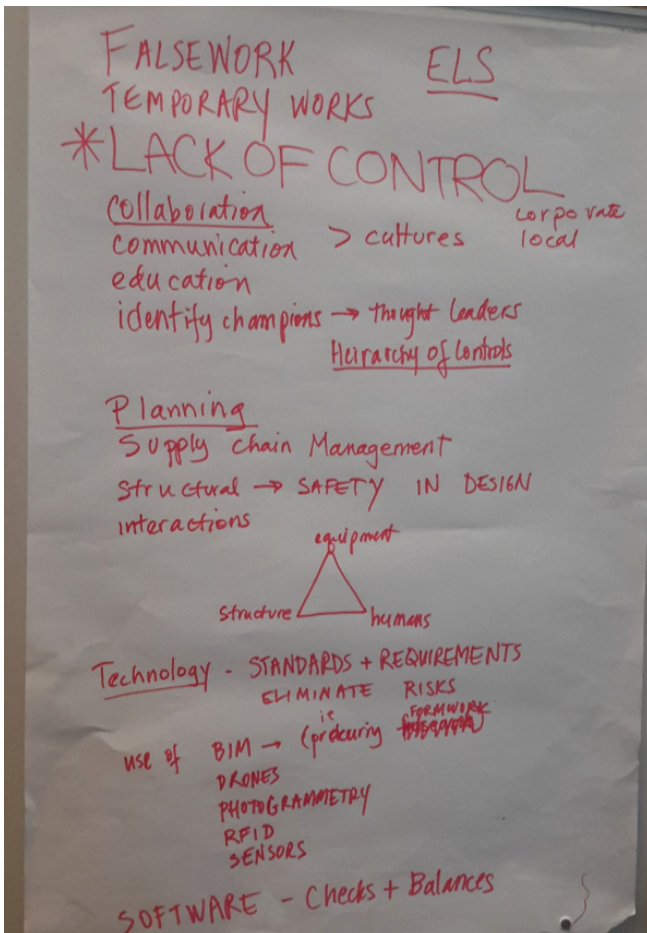 FALSEWORK ELS
TEMPORARY WORKS
*LACK OF CONTROL
Collaboration corporate
communication > cultures local
education
identify champions → thought leaders
Heirarchy of Controls
Planning
Supply Chain Management
Structural → SAFETY IN DESIGN
interactions
equipment
structure humans
Technology - STANDARDS + REQUIREMENTS
ELIMINATE RISKS
ie FORMWORK
use of BIM → (procuring
DRONES
PHOTOGRAMMETRY
RFID
SENSORS
SOFTWARE - Checks + Balances